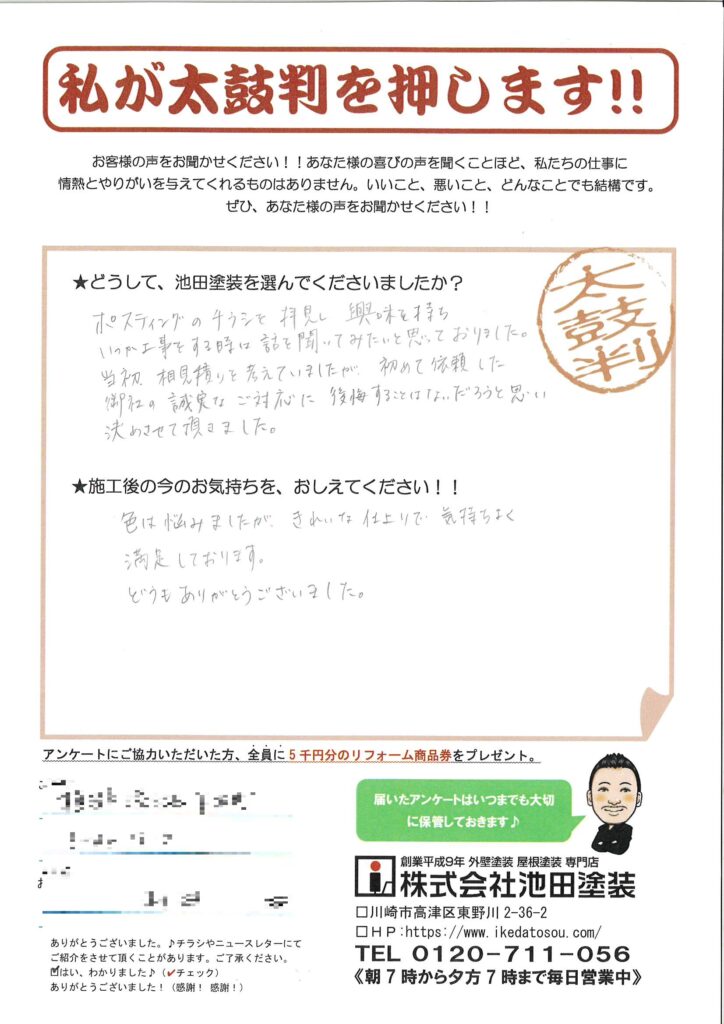 私が太鼓判を押します!!
お客様の声をお聞かせください！！あなた様の喜びの声を聞くことほど、私たちの仕事に
情熱とやりがいを与えてくれるものはありません。いいこと、悪いこと、どんなことでも結構です。
ぜひ、あなた様の声をお聞かせください！！
太鼓判
★どうして、池田塗装を選んでくださいましたか？
ポスティングのチラシを拝見し 興味を持ち
いつか工事をする時は話を聞いてみたいと思っておりました。
当初、相見積りを考えていましたが、初めて依頼した
御社の誠実なご対応に 後悔することはないだろうと思い
決めさせて頂きました。
★施工後の今のお気持ちを、おしえてください！！
色は悩みましたが、きれいな仕上りで 気持ちよく
満足しております。
どうもありがとうございました。
アンケートにご協力いただいた方、全員に５千円分のリフォーム商品券をプレゼント。
届いたアンケートはいつまでも大切
に保管しておきます♪
創業平成9年 外壁塗装 屋根塗装 専門店
株式会社池田塗装
□川崎市高津区東野川2-36-2
□ＨＰ:https://www.ikedatosou.com/
TEL 0120-711-056
《朝７時から夕方７時まで毎日営業中》
ありがとうございました。♪チラシやニュースレターにて
ご紹介をさせて頂くことがあります。ご了承ください。
☑はい、わかりました♪（✔チェック）
ありがとうございました！（感謝！ 感謝！）